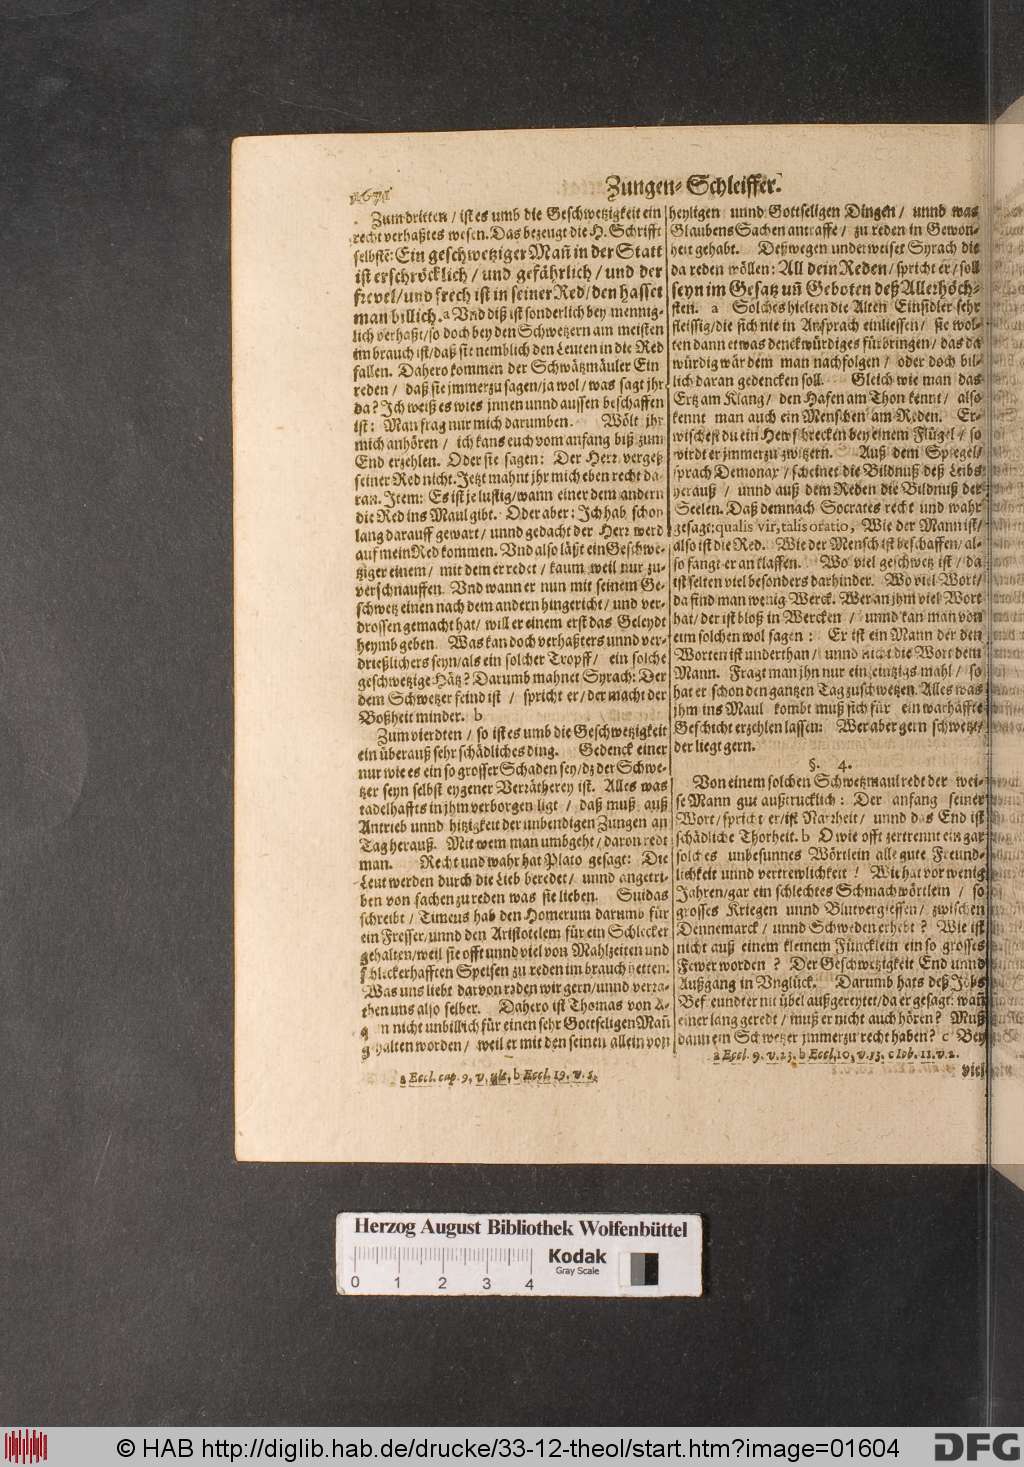 1671
Zungen-Schleiffer.
Zum dritten / ist es umb die Geschwetzigkeit ein
recht verhaßtes wesen. Das bezeugt die H. Schrifft
selbstē: Ein geschwetziger Mañ in der Statt
ist erschröcklich / und gefährlich / und der
frevel / und frech ist in seiner Red / den hasset
man billich. a Und diß ist sonderlich bey mennig-
lich verhaßt / so doch bey den Schwetzern am meisten
im brauch ist / daß sie nemblich den Leuten in die Red
fallen. Dahero kommen der Schwätzmäuler Ein
reden / daß sie jmmerzu sagen / ja wol / was sagt jhr
da? Ich weiß es wies jnnen unnd aussen beschaffen
ist: Man frag nur mich darumben. Wölt jhr
mich anhören / ich kans euch vom anfang biß zum
End erzehlen. Oder sie sagen: Der Herr vergeß
seiner Red nicht. Jetzt mahnt jhr mich eben recht da-
ran. Item: Es ist je lustig / wann einer dem andern
die Red ins Maul gibt. Oder aber: Ich hab schon
lang darauff gewart / unnd gedacht der Herr werd
auf mein Red kommen. Und also läßt ein Geschwe-
tziger einem / mit dem er redt / kaum weil nur zu-
verschnauffen. Und wann er nun mit seinem Ge-
schwetz einen nach dem andern hingericht / und ver-
drossen gemacht hat / will er einem erst das Geleydt
heymb geben. Was kan doch verhaßters unnd ver-
drießlichers seyn / als ein solcher Tropff / ein solche
geschwetzige Hätz? Darumb mahnet Syrach: Der
dem Schwetzer feind ist / spricht er / der macht der
Boßheit minder. b
Zum vierdten / so ist es umb die Geschwetzigkeit
ein überauß sehr schädliches ding. Gedenck einer
nur wie es ein so grosser Schaden sey / dz der Schwe-
tzer seyn selbst eygener Verrätherey ist. Alles was
tadelhaffts in jhm verborgen ligt / daß muß auß
Antrieb unnd hitzigkeit der unbendigen Zungen an
Tag herauß. Mit wem man umbgeht / davon redt
man. Recht und wahr hat Plato gesagt: Die
Leut werden durch die Lieb beredet / unnd angetri-
ben von sachen zu reden was sie lieben. Suidas
schreibt / Timeus hab den Homerum darumb für
ein Fresser / unnd den Aristotelem für ein Schlecker
gehalten / weil sie offt unnd viel von Mahlzeiten und
schleckerhafften Speisen zu reden im brauch hetten.
Was uns liebt darvon reden wir gern / unnd verra-
then uns also selber. Dahero ist Thomas von A-
q n nicht unbillich für einen sehr Gottseligen Mañ
g halten worden / weil er mit den seinen allein von
a Eccl. cap. 9. v. ult. b Eccl. 19. v. 5.
heyligen unnd Gottseligen Dingen / unnd was
Glaubens Sachen antraffe / zu reden in Gewon-
heit gehabt. Deßwegen underweiset Syrach die
da reden wöllen: All dein Reden / spricht er / soll
seyn im Gesatz uñ Geboten deß Allerhöch-
sten. a Solches hielten die Alten Einsidler sehr
fleissig / die sich nie in Ansprach einliessen / sie wol-
ten dann etwas denckwürdiges fürbringen / das da
würdig wär dem man nachfolgen / oder doch bil-
lich daran gedencken soll. Gleich wie man das
Ertz am Klang / den Hafen am Thon kennt / also
kennt man auch ein Menschen am Reden. Er-
wischest du ein Hewschrecken bey einem Flügel / so
wirdt er jmmerzu zwitzern. Auß dem Spiegel /
sprach Demonax / scheinet die Bildnuß deß Leibs
herauß / unnd auß dem Reden die Bildnuß der
Seelen. Daß demnach Socrates recht und wahr
gesagt: qualis vir, talis oratio, Wie der Mann ist /
also ist die Red. Wie der Mensch ist beschaffen / al-
so fangt er an klaffen. Wo viel geschwetz ist / da
ist selten viel besonders darhinder. Wo viel Wort /
da find man wenig Werck. Wer an jhm viel Wort
hat / der ist bloß in Wercken / unnd kan man von
eim solchen wol sagen: Er ist ein Mann der den
Worten ist underthan / unnd nicht die Wort dem
Mann. Fragt man jhn nur ein eintzigs mahl / so
hat er schon den gantzen Tag zuschwetzen. Alles was
jhm ins Maul kombt muß sich für ein warhäffte
Geschicht erzehlen lassen: Wer aber gern schwetzt /
der liegt gern.
§. 4.
Von einem solchen Schwetzmaul redt der wei-
se Mann gut außtrucklich: Der anfang seiner
Wort / spricht er / ist Narrheit / unnd das End ist
schädliche Thorheit. b O wie offt zertrennt ein gar
solches unbesunnes Wörtlein alle gute Freund-
lichkeit unnd vertrewlichkeit! Wie hat vor wenig
Jahren / gar ein schlechtes Schmachwörtlein / so
grosses Kriegen unnd Blutvergiessen / zwischen
Dennemarck / unnd Schweden erhebt? Wie ist
nicht auß einem kleinem Füncklein ein so grosses
Fewer worden? Der Geschwetzigkeit End unnd
Außgang in Unglück. Darumb hats deß Jobs
Befreundter nit übel außgereytet / da er gesagt: wañ
einer lang geredt / muß er nicht auch hören? Muß
dann ein Schwetzer jmmerzu recht haben? c Bey
a Eccl. 9. v. 23. b Eccl. 10. v. 13. c Iob. 11. v. 2.
viel
Herzog August Bibliothek Wolfenbüttel
Kodak
Gray Scale
0 1 2 3 4
© HAB http://diglib.hab.de/drucke/33-12-theol/start.htm?image=01604
DFG